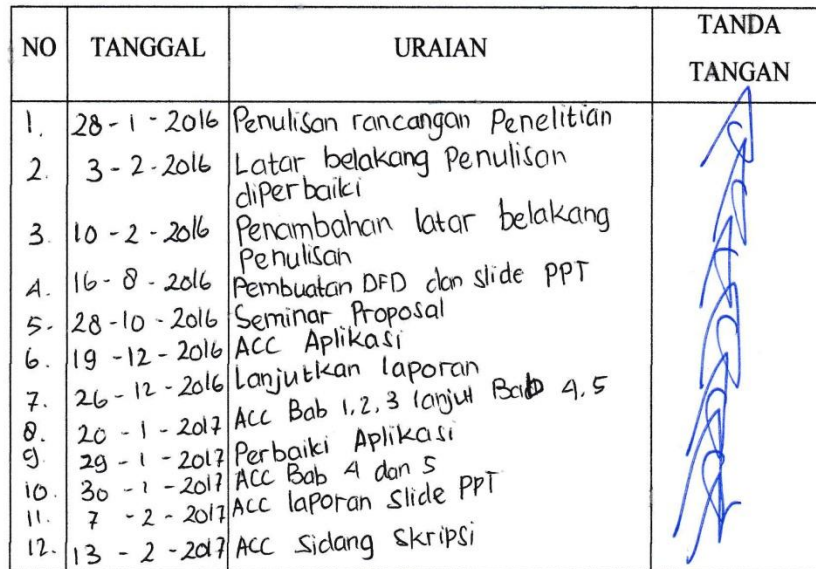 NO TANGGAL URAIAN TANDA TANGAN
1. 28 - 1 - 2016 Penulisan rancangan Penelitian
2. 3 - 2 - 2016 Latar belakang Penulisan
diperbaiki
3. 10 - 2 - 2016 Penambahan latar belakang
Penulisan
4. 16 - 8 - 2016 Pembuatan DFD dan slide PPT
5. 28 - 10 - 2016 Seminar Proposal
6. 19 - 12 - 2016 ACC Aplikasi
7. 26 - 12 - 2016 Lanjutkan laporan
8. 20 - 1 - 2017 ACC Bab 1, 2, 3 lanjut Bab 4, 5
9. 29 - 1 - 2017 Perbaiki Aplikasi
10. 30 - 1 - 2017 ACC Bab 4 dan 5
11. 7 - 2 - 2017 ACC laporan slide PPT
12. 13 - 2 - 2017 ACC Sidang Skripsi